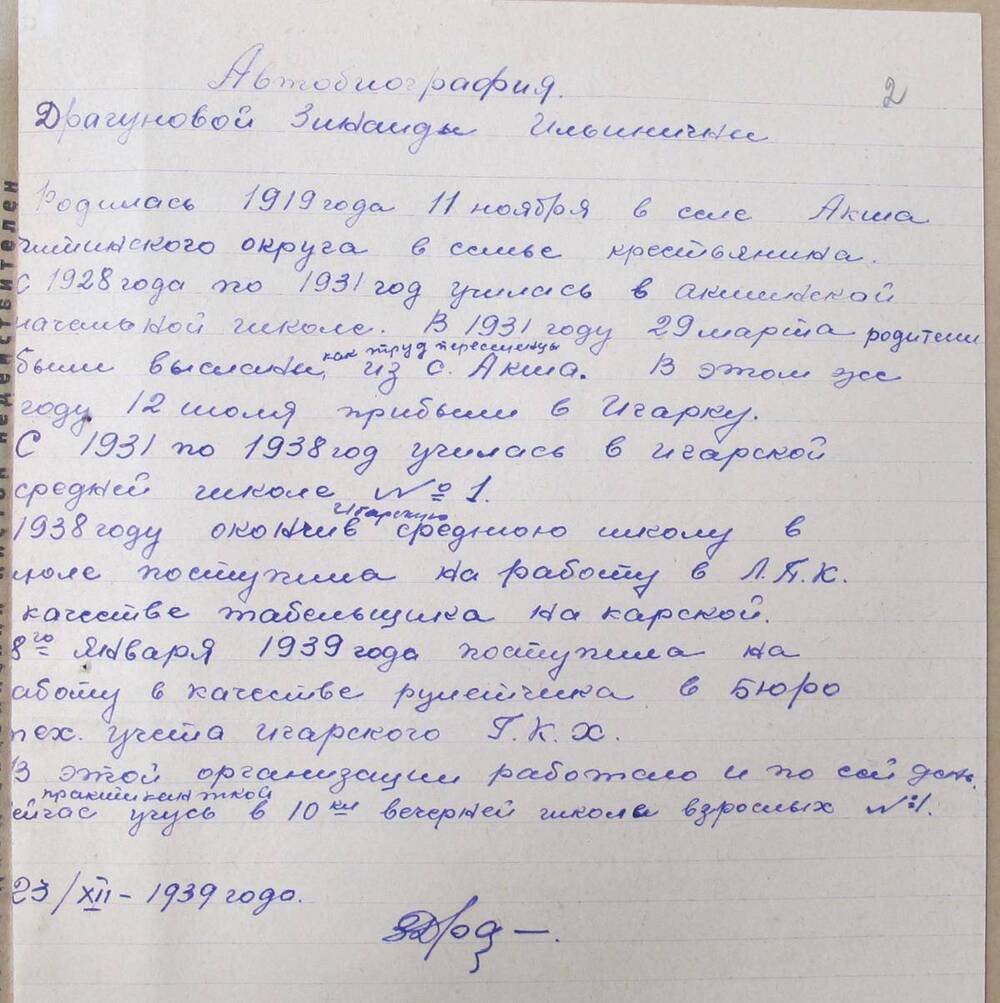 Автобиография.
2
Драгуновой Зинаиды Ильиничны
Родилась 1919 года 11 ноября в селе Акша
читинского округа в семье крестьянина.
С 1928 года по 1931 год училась в акшинской
начальной школе. В 1931 году 29 марта родители
как труд переселенцы
были высланы, из с. Акша. В этом же
году 12 июля прибыли в Игарку.
С 1931 по 1938 год училась в игарской
средней школе № 1.
Игарскую
1938 году окончив среднюю школу в
июле поступила на работу в Л.П.К.
качестве табельщика на карской.
8го января 1939 года поступила на
аботу в качестве рулетчика в Бюро
тех. учета игарского Г.К.Х.
В этой организации работаю и по сей день.
практиканткой
ейчас учусь в 10 км вечерней школы взрослых №1.
23/XII – 1939 года.
недействителен